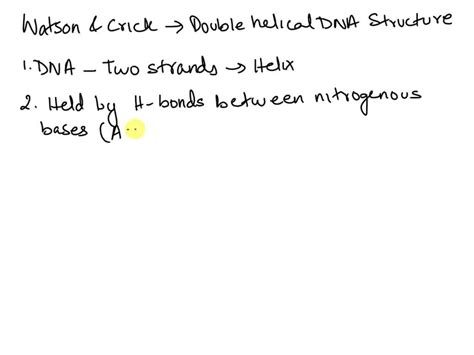 Watson & Crick → Double helical DNA Structure
1. DNA – Two strands → Helix
2. Held by H-bonds between nitrogenous
bases (A --